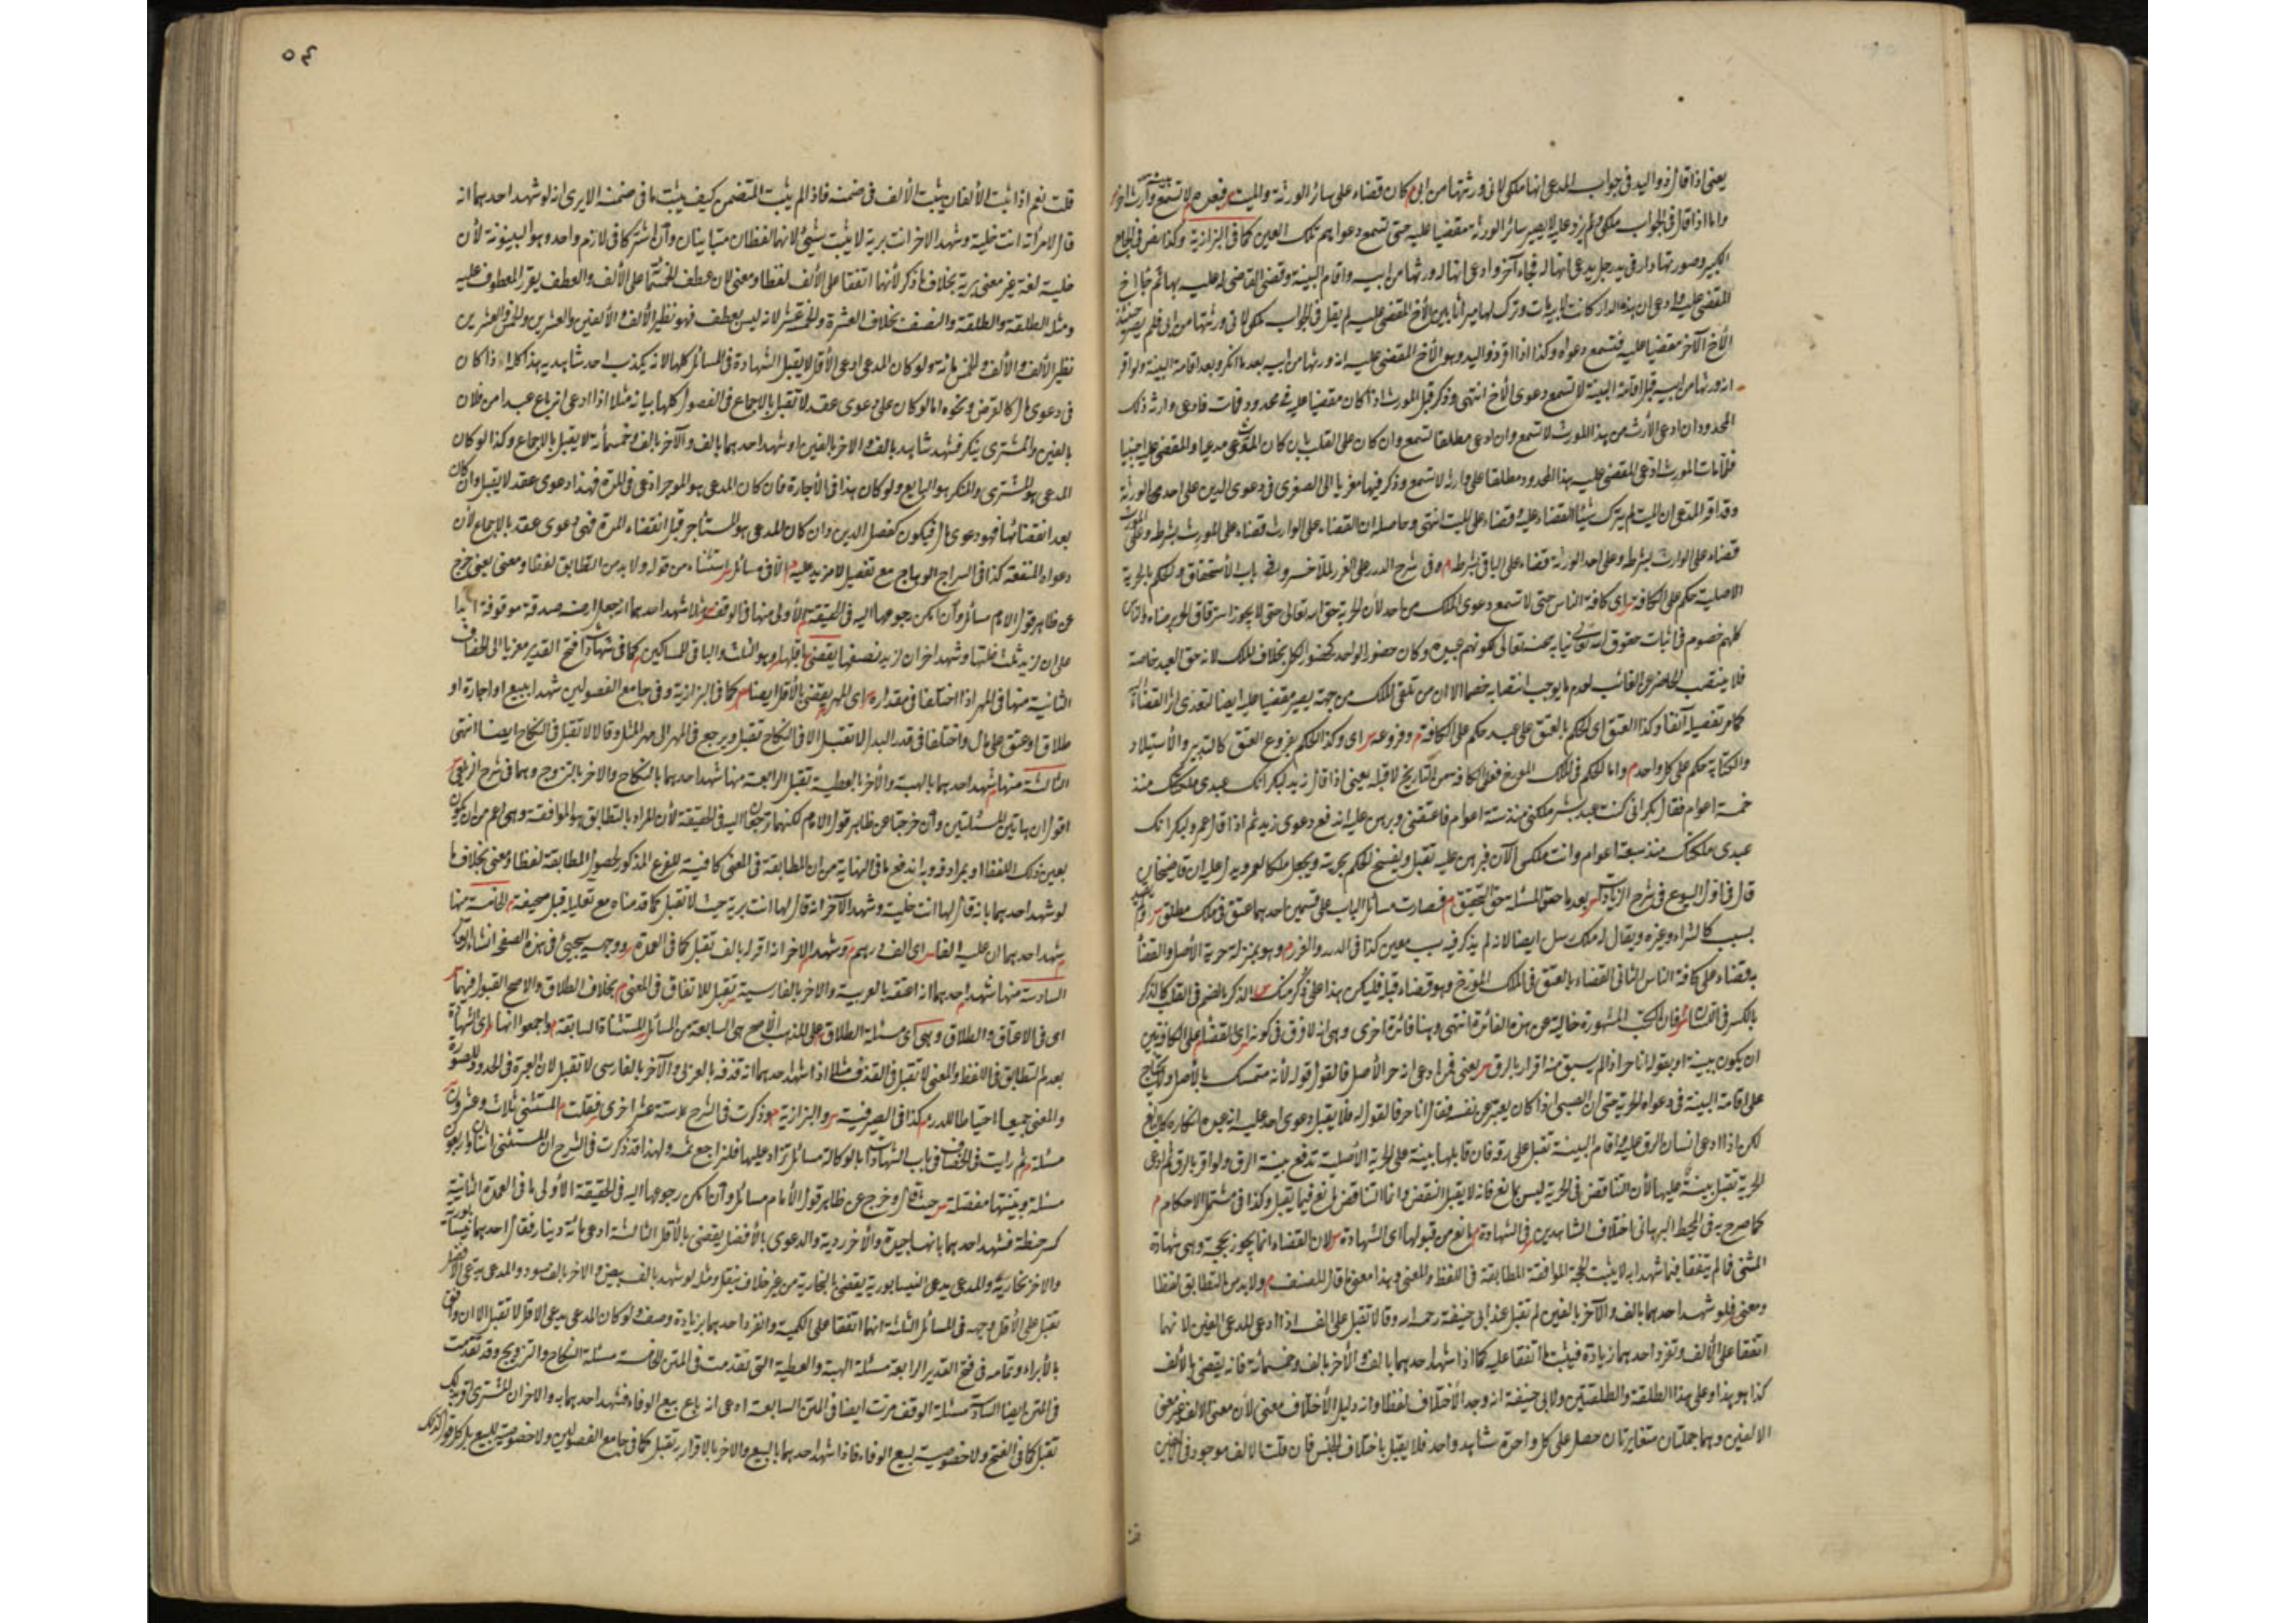 يعنى اذا قال ذو اليد فى جواب المدعى انها ملكى لانى ورثتها من ابى كان قضاء على سائر الورثة والميت فيعن م لا تسمع
واما اذا قال فى الجواب ملكى ولم يزد عليه لا يصير سائر الورثة مقضيا عليه حتى تسمع دعواهم تلك العين كما فى البزازية وكذا نص فى الجامع
الكبير وصورتها دار فى يد رجل يدعى انها له فجاء آخر وادعى انها له ورثها من ابيه واقام البينة وقضى القاضى له عليه بها ثم جاء اخ
المقضى عليه وادعى ان هذه الدار كانت لابيه مات وترك لها ميراثا بين الأخ المقضى عليه لم يقل فى الجواب ملكى لانى ورثتها من ابى فلم يصر
الأخ الآخر مقضيا عليه فتسمع دعواه وكذا اذا اقر ذو اليد وهو الأخ المقضى عليه انه ورثها من ابيه بعد ما انكر وبعد اقامة البينة ولو اقر
انه ورثها من ابيه قبل اقامة البينة لا تسمع دعوى الأخ انتهى وذكر قبل المورث اذا كان مقضيا عليه فى محدود فمات فادعى وارثه ذلك
المحدود ان ادعى الأرث من هذا المورث لا تسمع وان ادعى مطلقا تسمع وان كان على القلب بان كان المدعى مدعيا والمقضى عليه اجنبيا
فلما مات المورث ادعى المقضى عليه هذا المحدود مطلقا على وارثه لا تسمع وذكر فيها معزيا الى الصغرى فى دعوى الدين على احدى الورثة
وقد اقر المدعى ان الميت لم يترك شيئا القضاء عليه قضاء على الميت انتهى وحاصله ان القضاء على الوارث قضاء على المورث بشرطه وعلى
قضاء على الوارث بشرطه وعلى احد الورثة قضاء على الباقى بشرطه م وفى شرح الدرر على الغرر لملا خسرو باب الأستحقاق والحكم بالحرية
الاصلية حكم على الكافة س اى كافة الناس حتى لا تسمع دعوى الملك من احد لأن الحرية حق الله تعالى حتى لا يجوز استرقاق الحر برضاه والناس
كلهم خصوم فى اثبات حقوق الله تعالى نيابة عنه تعالى لكونهم عبيده وكان حضور الواحد كحضور الكل بخلاف الملك لانه حق العبد خاصة
فلا ينتصب الحاضر عن الغائب لعدم ما يوجب انتصابه خصما الا ان من تلقى الملك من جهة يصير مقضيا عليه ايضا لتعدى اثر القضاء
كما مر تفصيله آنفا وكذا العتق اى الحكم بالعتق على عبد حكم على الكافة م وفروعه س اى وكذا الحكم بفروع العتق كالتدبير والأستيلاد
والكتابة حكم على كل واحد م واما الحكم فى الملك المورخ فعلى الكافة من التاريخ لا قبله يعنى اذا قال زيد لبكر انك عبدى ملكتك منذ
خمسة اعوام فقال بكر انى كنت عبد بشر ملكنى منذ ستة اعوام فاعتقنى وبرهن عليه اندفع دعوى زيد ثم اذا قال عمرو لبكر انك
عبدى ملكتك منذ سبعة اعوام وانت ملكى الآن فبرهن عليه تقبل ويفسخ الحكم بحريته ويجعل ملكا لعمرو يدل عليه ان قاضيخان
قال فى اول البيوع فى شرح الزيادات بعد ما حقق المسئلة حق التحقيق م فصارت مسائل الباب على قسمين احدهما عتق فى ملك مطلق
بسبب كالشراء وغيره ويقال له ملك مرسل ايضا لانه لم يذكر فيه سبب معين كذا فى الدرر والغرر م وهو بمنزلة حرية الأصل والقضاء
به قضاء على كافة الناس الثانى القضاء بالعتق فى الملك المورخ وهو قضاء قبله فليكن هذا على ذكر منك س الذكر بالضم فى القلب كالذكر
بالكسر فى اللسان م فان الكتب المشهورة خالية عن هذه الفائدة انتهى وهنا فائدة اخرى وهى انه لا فرق فى كونه اى القضاء على الكافة بين
ان يكون ببينة او بقوله انا حر اذا لم يسبق منه اقرار بالرق س يعنى فمن ادعى انه حر الأصل فالقول قوله لأنه متمسك بالأصل ولا يحتاج
على اقامة البينة فى دعواه الحرية حتى ان الصبى اذا كان يعبر عن نفسه فقال انا حر فالقول له فلا يقبل دعوى احد عليه انه عبده
لكن اذا ادعى انسان الرق عليه واقام البينة تقبل على رقه فان قابلها بينة على الحرية الأصلية تدفع بينة الرق ولو اقر بالرق ثم ادعى
الحرية تقبل بينته عليها لأن التناقض فى الحرية ليس بمانع فانه لا يقبل النقض وانما التناقض المانع فيما يقبله وكذا فى مشتمل الاحكام م
كما صرح به فى المحيط البرهانى اختلاف الشاهدين فى الشهادة مانع من قبولها اى الشهادة س لان القضاء انما يجوز بحجة وهى شهادة
المثنى فما لم يتفقا فيما شهدا به لا يثبت الحجة الموافقة المطابقة فى اللفظ والمعنى وهذا معنى ما قال المصنف م ولا بد من التطابق لفظا
ومعنى فلو شهد احدهما بالف والآخر بالفين لم تقبل عند ابى حنيفة رحمه الله وقالا تقبل على الف اذا ادعى المدعى الفين لانهما
اتفقا على الألف وتفرد احدهما بزيادة فيثبت ما اتفقا عليه كما اذا شهد احدهما بالف والآخر بالف وخمسمائة فانه يقضى بالألف
كذا هو هذا وعلى هذا الطلقة والطلقتين ولابى حنيفة انه وجد الأختلاف لفظا وانه دليل الأختلاف معنى لأن معنى الالف غير معنى
الالفين وهما جملتان متغايرتان حصل على كل واحدة شاهد واحد فلا يقبل باختلاف الجنس فان قلت الالف موجود فى الالفين
٥٤
قلت نعم اذا ثبت الألفان يثبت الألف فى ضمنه فاذا لم يثبت المتضمن كيف يثبت ما فى ضمنه الا يرى انه لو شهد احدهما انه
قال لامرأته انت خلية وشهد الآخر انت برية لا يثبت شئ لانهما لفظان متباينان وان اشتركا فى لازم واحد وهو البينونة لأن
خلية لغة غير معنى برية بخلاف ما ذكر لأنهما اتفقا على الألف لفظا ومعنى لان عطف الخمسمائة على الألف والعطف يقرر المعطوف عليه
ومثله الطلقة والطلقة والنصف بخلاف العشرة والخمسة عشر لانه ليس بعطف فهو نظير الألف والألفين والعشرين والخمس والعشرين
نظير الألف والألف والخمسمائة ولو كان المدعى ادعى الأقل لا يقبل الشهادة فى المسائل كلها لانه يكذب احد شاهديه هذا كله اذا كان
فى دعوى مال كالقرض ونحوه اما لو كان على دعوى عقد لا تقبل بالاجماع فى الفصول كلها بيانه مثلا اذا ادعى انه باع عبدا من فلان
بالفين والمشترى ينكر فشهد شاهد بالف والاخر بالفين او شهد احدهما بالف والآخر بالف وخمسمأة لا يقبل بالاجماع وكذا لو كان
المدعى هو المشترى والمنكر هو البايع ولو كان هذا فى الأجارة فان كان المدعى هو الموجر ادعى فى المدة فهذا دعوى عقد لا يقبل وان كان
بعد انقضائها فهو دعوى مال فيكون كفصل الدين وان كان المدعى هو المستأجر قبل انقضاء المدة فهى دعوى عقد بالاجماع لأن
دعواه المنفعة كذا فى السراج الوهاج مع تفصيل لا مزيد عليه م الا فى مسائل س استثناء من قوله ولا بد من التطابق لفظا ومعنى يعنى خرج
عن ظاهر قول الامام مسائل وان امكن رجوعها اليه فى الحقيقة م الأولى منها فى الوقف س شهد احدهما انه جعل ارضه صدقة موقوفة ابدا
على ان لزيد ثلث غلتها وشهد اخر ان لزيد نصفها يقضى باقلهما وهو الثلث والباقى للمساكين كما فى شهادات فتح القدير معزيا الى الخصاف
الثانية منها فى المهر اذا اختلفا فى مقداره س اى المهر يقضى بالأقل ايضا س كما فى البزازية وفى جامع الفصولين شهدا ببيع او اجارة او
طلاق او عتق على مال واختلفا فى قدر البدل لا تقبل الا فى النكاح تقبل ويرجع فى المهر الى مهر المثل وقالا لا تقبل فى النكاح ايضا انتهى
الثالثة منها شهد احدهما بالهبة والأخر بالعطية تقبل الرابعة منها شهد احدهما بالنكاح والاخر بالتزوج وهما فى شرح الزيلعى
اقول ان هاتين المسئلتين وان خرجتا عن ظاهر قول الامام لكنهما ترجعان اليه فى الحقيقة لأن المراد بالتطابق هو الموافقة وهى اعم من ان يكون
بعين ذلك اللفظ او بمرادفه وبه اندفع ما فى النهاية من ان المطابقة فى المعنى كافية للفرع المذكور لحصول المطابقة لفظا ومعنى بخلاف ما
لو شهد احدهما بانه قال لها انت خلية وشهد الآخر انه قال لها انت برية حيث لا تقبل كما قدمناه مع تعليله قبل صحيفة الخامسة منها
شهد احدهما ان عليه الفا س اى الف درهم م وشهد الاخر انه اقر له بالف تقبل كما فى العمدة س ووجهه سيجئ فى هذه الصفحة انشاء الله
السادسة منها شهد احدهما انه اعتقه بالعربية والاخر بالفارسية تقبل للاتفاق فى المعنى م بخلاف الطلاق والاصح القبول فيهما
اى فى الاعتاق والطلاق وهى اى مسئلة الطلاق على المذهب الأصح هى السابعة من المسائل المستثناة السابقة م واجمعوا انها اى الشهادة
بعدم التطابق فى اللفظ والمعنى لا تقبل فى القذف مثلا اذا شهد احدهما انه قذفه بالعربى والآخر بالفارسى لا تقبل لان العبرة فى الحدود للصورة
والمعنى جميعا احتياطا للدرء كذا فى الصيرفية س والبزازية م وذكرت فى الشرح ستة عشر اخرى فبلغت المستثنى ثلاث وعشرون
مسئلة م ثم رايت فى الخصاف فى باب الشهادات بالوكالة مسائل تزاد عليها فلتراجع ثمه ولهذا قد ذكرت فى الشرح ان المستثنى اثنان واربعون
مسئلة وبينتها مفصلة س حيث قال وخرج عن ظاهر قول الأمام مسائل وان امكن رجوعها اليه فى الحقيقة الأولى ما فى العمدة الثانية
كر حنطة فشهد احدهما بانها جيدة والأخر ردية والدعوى بالأفضل يقضى بالأقل الثالثة ادعى مائة دينار فقال احدهما نيسابورية
والاخر بخارية والمدعى يدعى النيسابورية يقضى بالبخارية من غير خلاف ينقل ومثله لو شهد بالف بيض والاخر بالف سود والمدعى يدعى الأفضل
تقبل على الأقل وجهه فى المسائل الثلاثة انهما اتفقا على الكمية وانفرد احدهما بزيادة وصف ولو كان المدعى يدعى الاقل لا تقبل الا ان وفق
بالأبراء وتمامه فى فتح القدير الرابعة مسئلة الهبة والعطية التى تقدمت فى المتن الخامسة مسئلة النكاح والتزويج وقد تقدمت
فى المتن ايضا السادسة مسئلة الوقف مرت ايضا فى المتن السابعة ادعى انه باع بيع الوفاء فشهد احدهما به والاخر ان المشترى اقر بذلك
تقبل كما فى الفتح ولا خصوصية لبيع الوفاء فاذا شهد احدهما بالبيع والاخر بالاقرار به تقبل كما فى جامع الفصولين ولا خصوصية للبيع بل كل قول كذلك